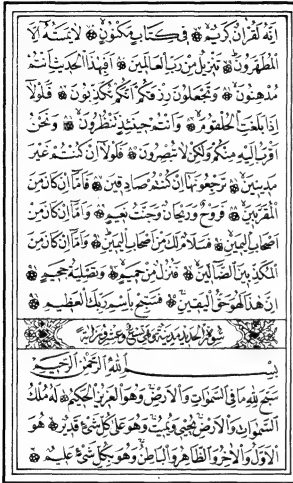 انه لقران كريم ۞ في كتاب مكنون ۞ لا يمسه الا
المطهرون ۞ تنزيل من رب العالمين ۞ افبهذا الحديث انتم
مدهنون ۞ وتجعلون رزقكم انكم تكذبون ۞ فلولا
اذا بلغت الحلقوم ۞ وانتم حينئذ تنظرون ۞ ونحن
اقرب اليه منكم ولكن لا تبصرون ۞ فلولا ان كنتم غير
مدينين ۞ ترجعونها ان كنتم صادقين ۞ فاما ان كان من
المقربين ۞ فروح وريحان وجنت نعيم ۞ واما ان كان من
اصحاب اليمين ۞ فسلام لك من اصحاب اليمين ۞ واما ان كان من
المكذبين الضالين ۞ فنزل من حميم ۞ وتصلية جحيم ۞
ان هذا لهو حق اليقين ۞ فسبح باسم ربك العظيم ۞
سورة الحديد مدنية وهي تسع وعشرون اية
بسم الله الرحمن الرحيم
سبح لله ما في السموات والارض وهو العزيز الحكيم ۞ له ملك
السموات والارض يحيي ويميت وهو على كل شيء قدير ۞ هو
الاول والاخر والظاهر والباطن وهو بكل شيء عليم ۞